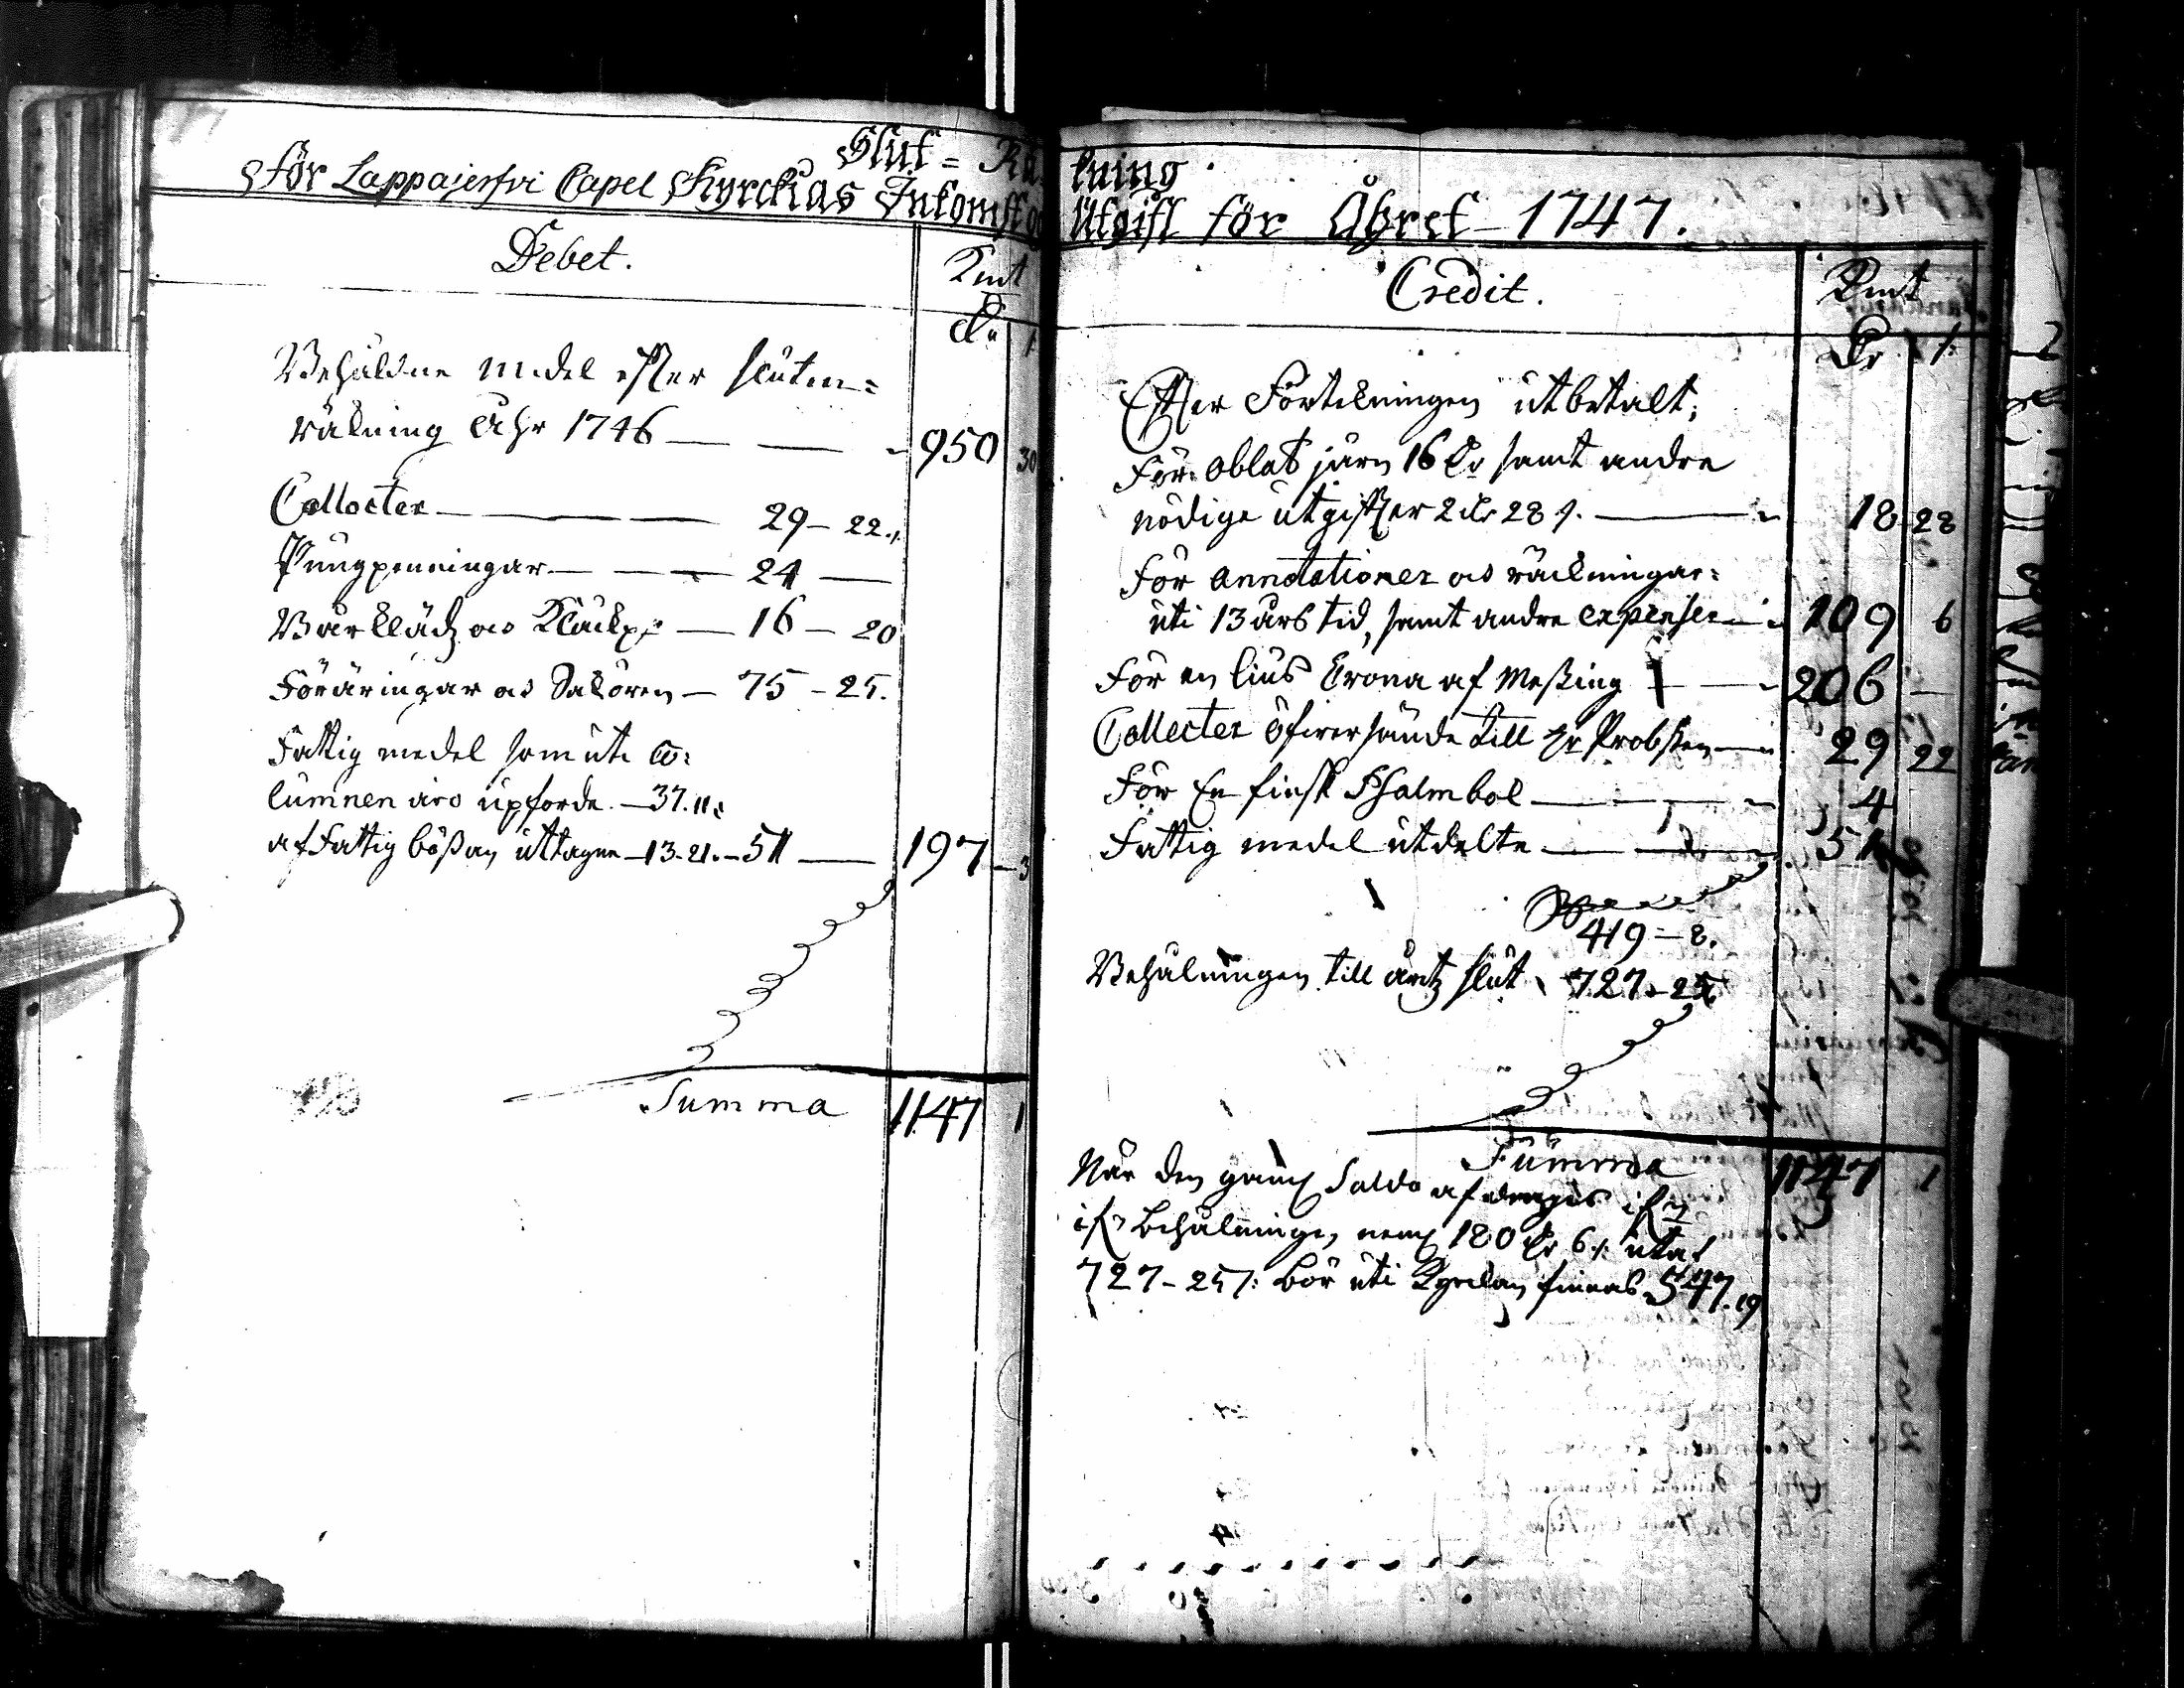 Slut= Rä
för Lappajerfvi Capel Kyrckias Inkomst oc
Debet.
Kmt
dr /.
Behåldne medel efter sluten=
räkning Åhr 1746 — — 950 30
Collecter — — 29 – 22./.
Pungpenningar — — 24 —
Bårkläd: oc Klåckp: — 16 – 20
Föräringar oc Sakören — 75 – 25.
Fattig medel som uti Co=
lumnen äro upförde. — 37.11.
af Fattig bößan uttagne — 13-21. – 51 — 197 – 3
Summa 1147 1
kning
Utgift för Åhret 1747.
Credit.
Kmt
dr /.
Efter Förtekningen utbetalt;
För oblat järn 16 dr samt andre
nödige utgifter 2 dr 28 /. — 18 28
För annotationer oc räckningar
uti 13 års tid, samt andre expenser — 109 6
För en lius Crona af Meßing — 206 —
Collecter öfversände till Hr Probsten — 29 22
För En finsk Psalmbok — 4
Fattig medel utdelte — 51
419 – 8.
Behålningen till åretz slut 727 – 25
Summa 1147 1
När den gaml Saldo afdrages ifrn
behålninge, neml 180 dr 6 /: utaf
727 – 25 /: bör uti Kyrckan finnas 547. 19